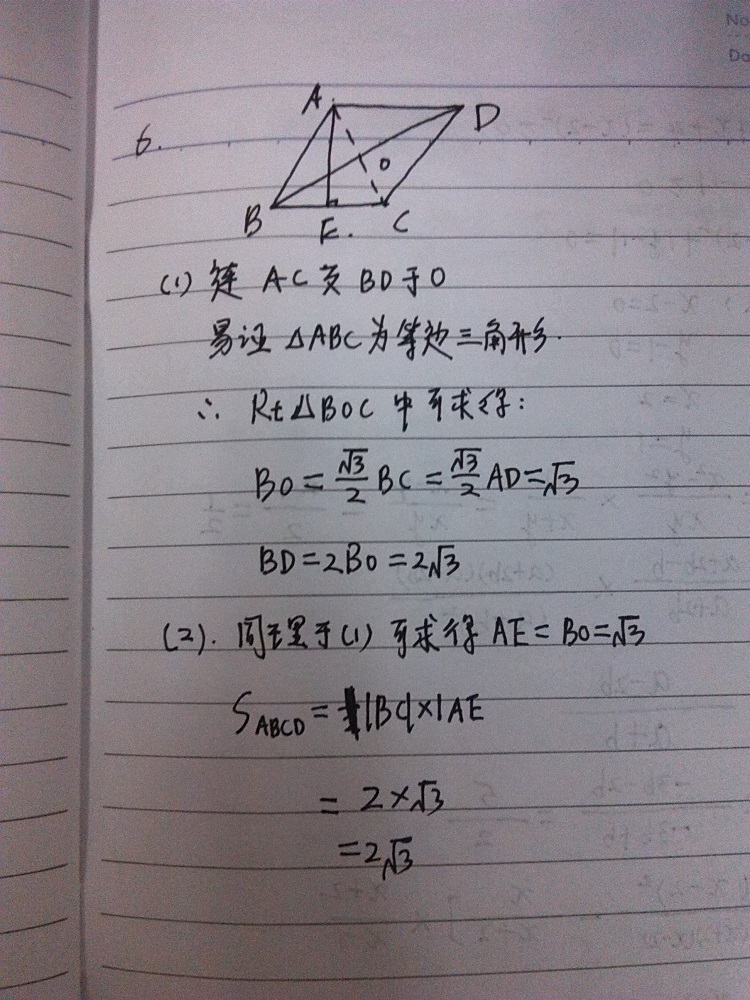 No
Da
6.
A
D
O
B
E.
C
(1) 连 AC交 BD于O
易证 △ABC为等边三角形.
∴ Rt△BOC 中可求得:
BO=√3/2 BC=√3/2 AD=√3
BD=2BO=2√3
(2). 同理于(1) 可求得 AE=BO=√3
S_ABCD=|BC|×|AE
=2×√3
=2√3